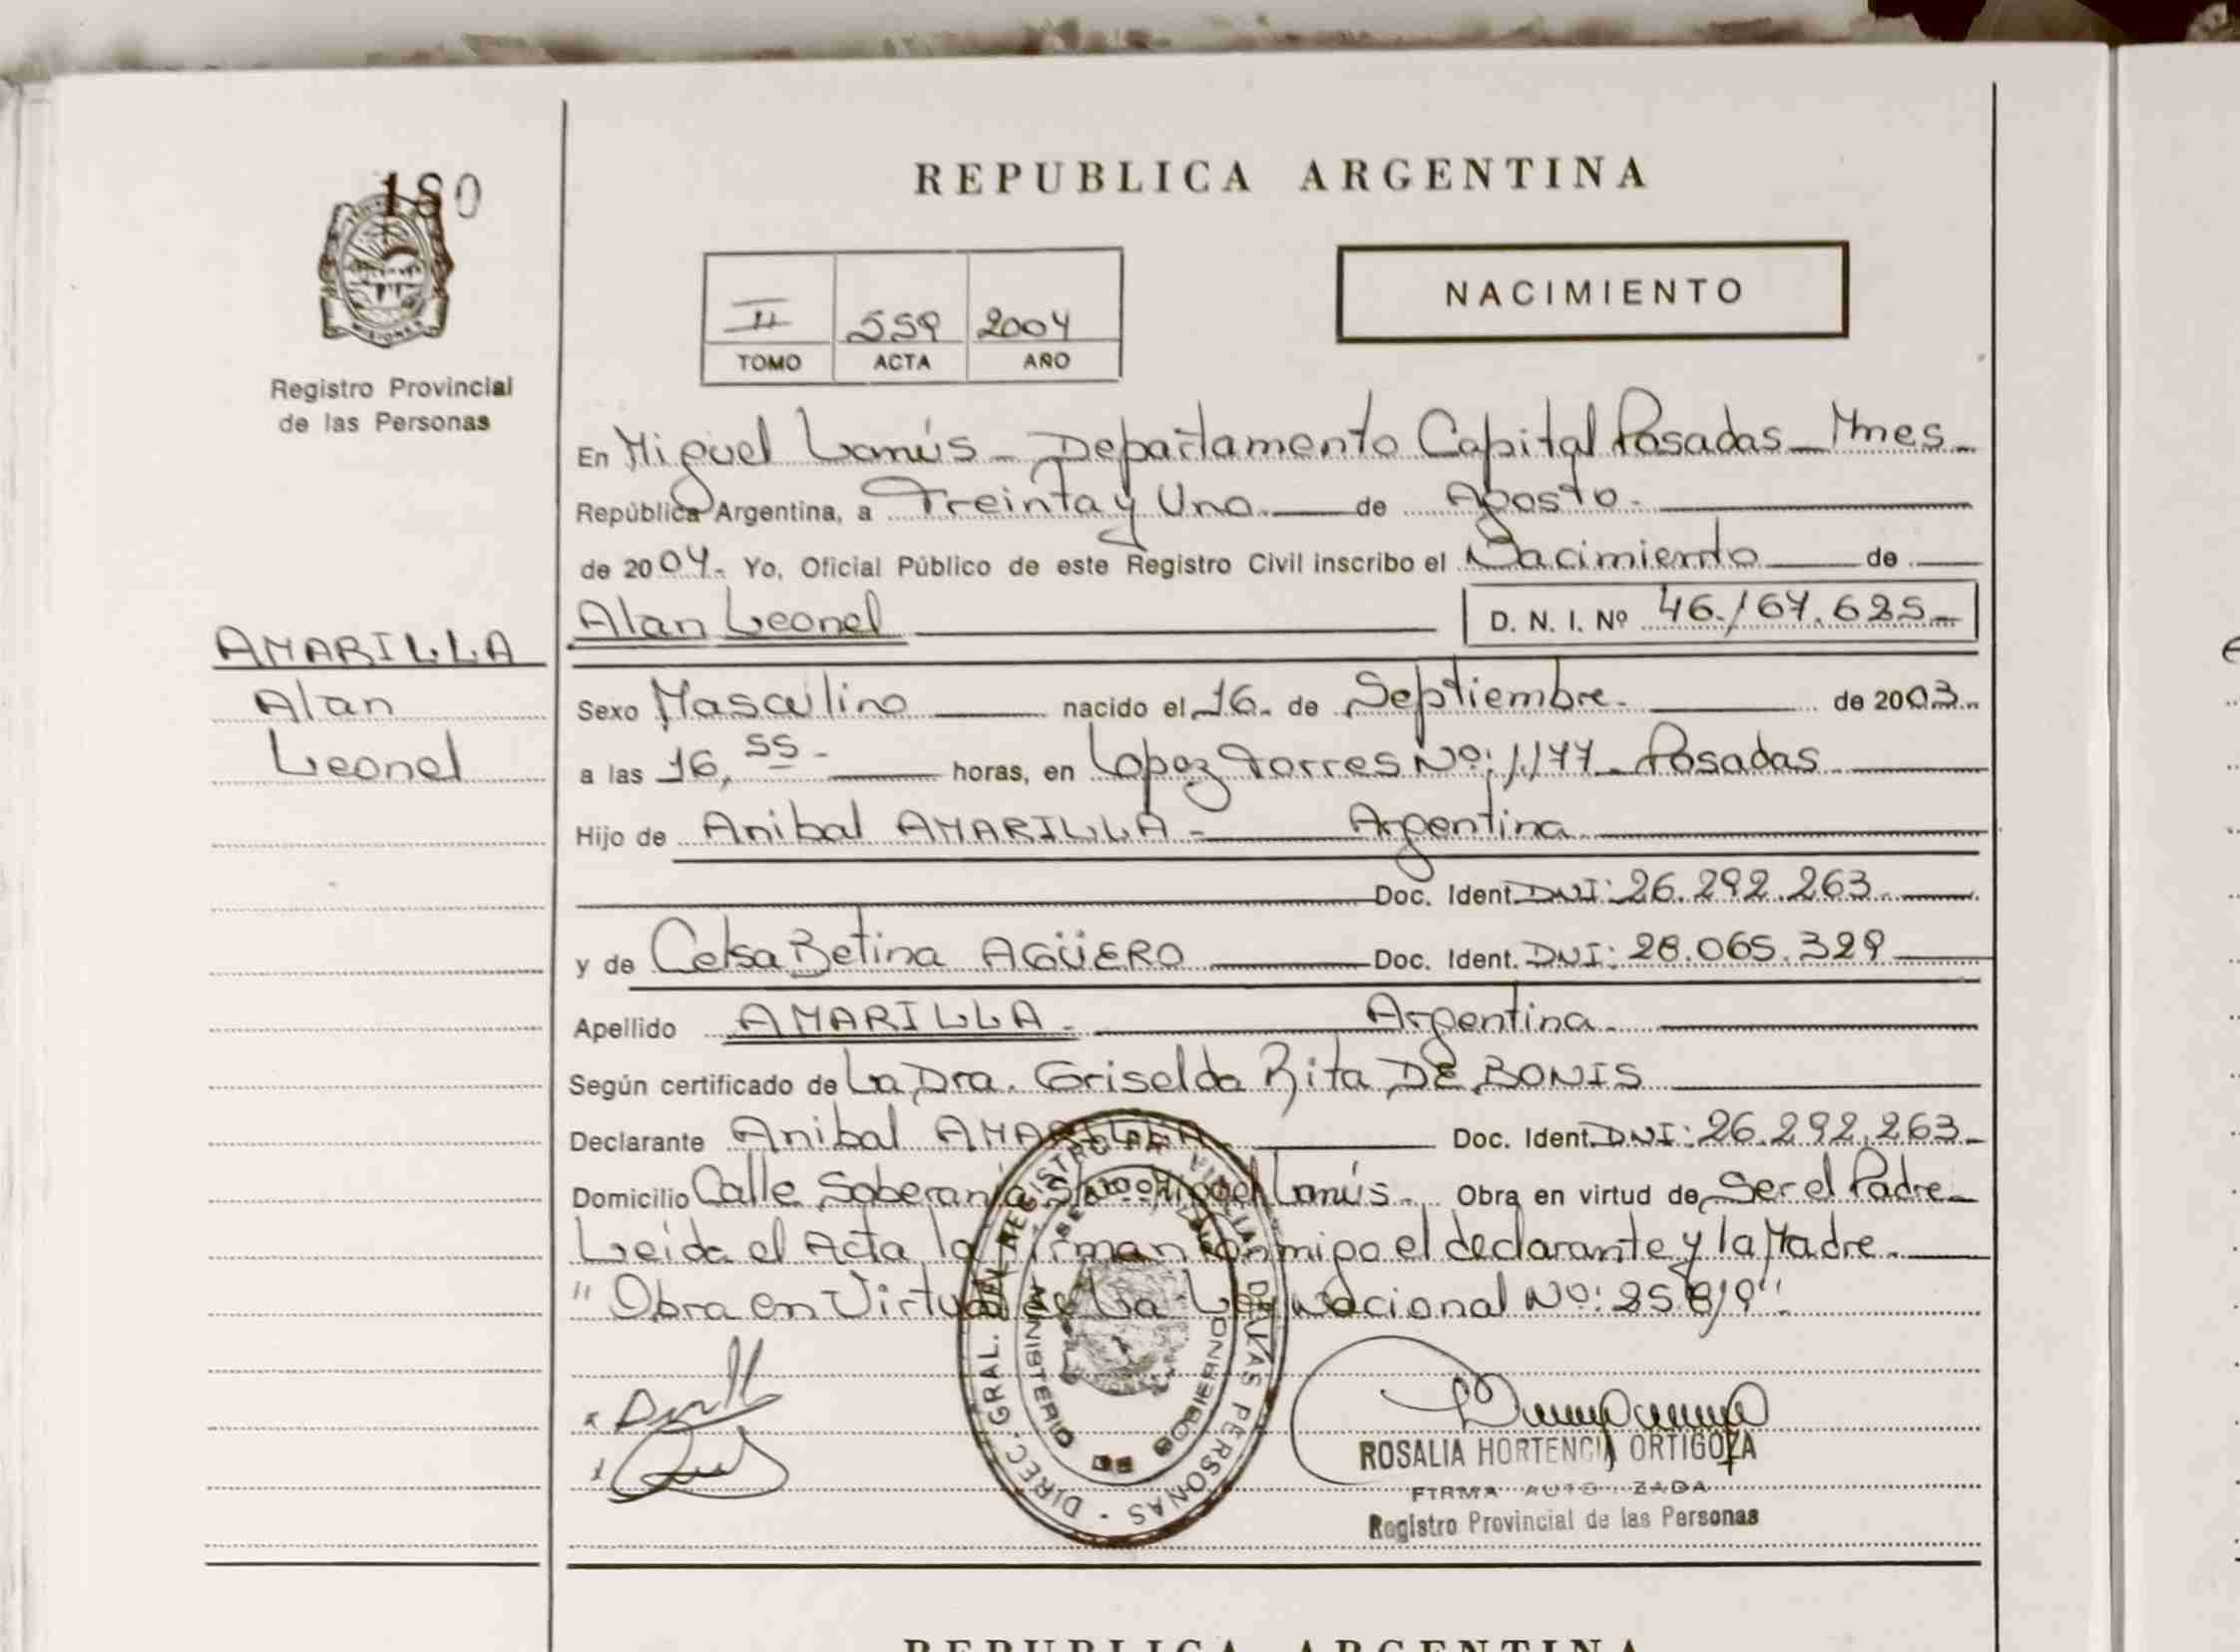 180
MISIONES
Registro Provincial
de las Personas
REPUBLICA ARGENTINA
II 559 2004
TOMO ACTA AÑO
NACIMIENTO
En Miguel Lanús - Departamento Capital Posadas - Mnes -
República Argentina, a Treinta y Uno de Agosto -
de 2004- Yo, Oficial Público de este Registro Civil inscribo el Nacimiento de
Alan Leonel D. N. I. Nº 46.164.685-
AMARILLA
Alan
Leonel
Sexo Masculino nacido el 16- de Septiembre - de 2003-
a las 16, 55 - horas, en Lopez Torres Nº: 1.177 - Posadas
Hijo de Anibal AMARILLA - Argentina
Doc. Ident. DNI: 26.292.263 -
y de Celsa Betina AGÜERO Doc. Ident. DNI: 28.065.329
Apellido AMARILLA - Argentina -
Según certificado de La Dra. Griselda Rita DE BONIS
Declarante Anibal AMARILLA - Doc. Ident. DNI: 26.292.263 -
Domicilio Calle Soberanía Miguel Lanús - Obra en virtud de Ser el Padre -
Leida el Acta la firman conmigo el declarante y la Madre -
"Obra en Virtud de La Ley Nacional Nº: 25819"
DIREC. GRAL. DEL REGISTRO PROVINCIAL DE LAS PERSONAS -
MINISTERIO DE GOBIERNO
ROSALIA HORTENCIA ORTIGOZA
FIRMA AUTORIZADA
Registro Provincial de las Personas
REPUBLICA ARGENTINA